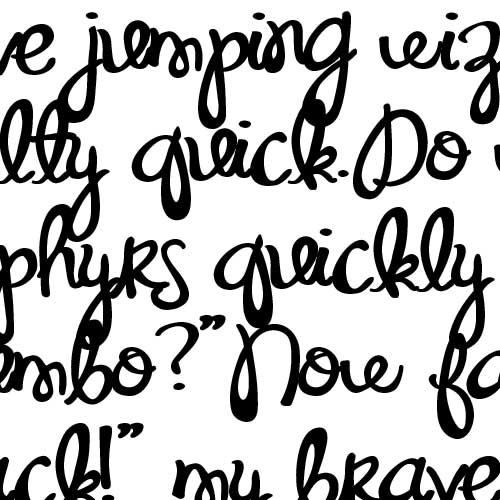 ve jumping wiz
lty quick. Do
phyrs quickly
mbo?" Now fa
ack!" my brave